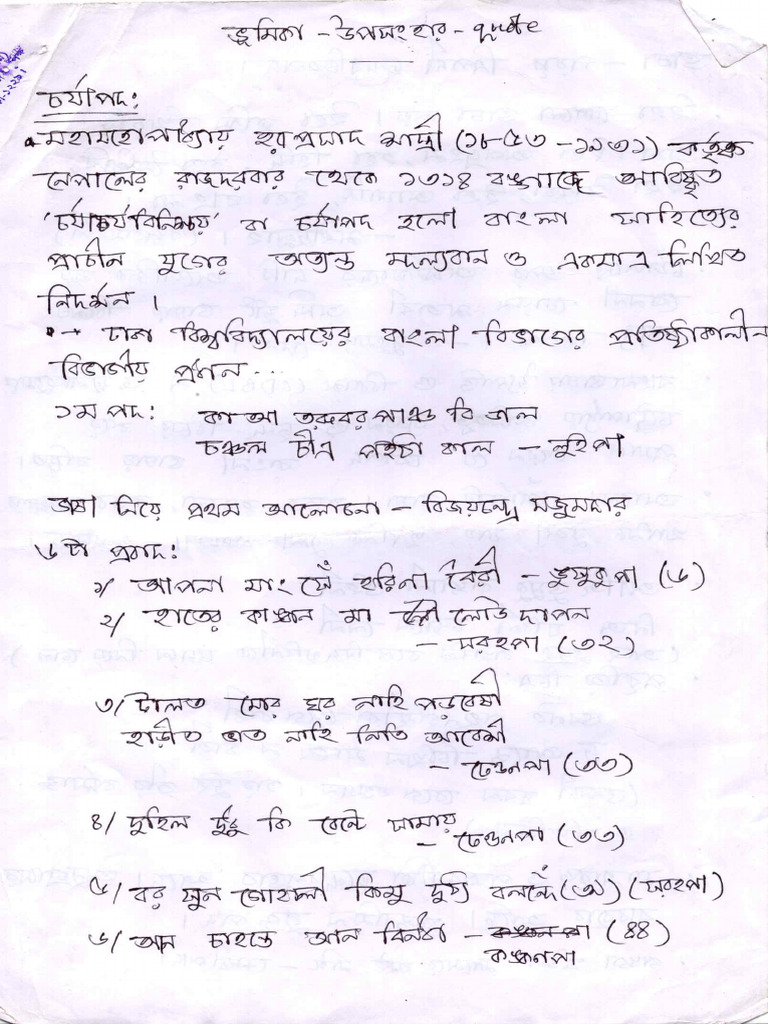 ভূমিকা - উপসংহার - quote
চর্যাপদ:
মহামহোপাধ্যায় হরপ্রসাদ শাস্ত্রী (১৮৫৩ - ১৯৩১) কর্তৃক
নেপালের রাজদরবার থেকে ১৩১৪ বঙ্গাব্দে আবিষ্কৃত
'চর্যাচর্যবিনিশ্চয়' বা চর্যাপদ হলো বাংলা সাহিত্যের
প্রাচীন যুগের অত্যন্ত মূল্যবান ও একমাত্র লিখিত
নিদর্শন ।
→ ঢাকা বিশ্ববিদ্যালয়ের বাংলা বিভাগের প্রতিষ্ঠাকালীন
বিভাগীয় প্রধান...
১ম পদ: কাআ তরুবর পাঞ্চ বি ডাল
চঞ্চল চীএ পইঠা কাল - লুইপা
ভাষা নিয়ে প্রথম আলোচনা - বিজয়চন্দ্র মজুমদার
৬টি প্রবাদ:
১/ আপনা মাংসেঁ হরিনা বৈরী - ভুসুকুপা (৬)
২/ হাতের কাঙ্কন মা লোউ দাপন
- সরহপা (৩২)
৩/ টালত মোর ঘর নাহি পড়বেষী
হাড়ীত ভাত নাহি নিতি আবেশী
- ঢেণ্ডনপা (৩৩)
৪/ দুহিল দুধু কি বেন্টে সামায়
- ঢেণ্ডনপা (৩৩)
৫/ বর সুন গোহালী কিমু দুঠ্য বলন্দেঁ (৩৯) (সরহপা)
৬/ আন চাহন্তে আন বিনঠা - (৪৪)
কঙ্কণপা